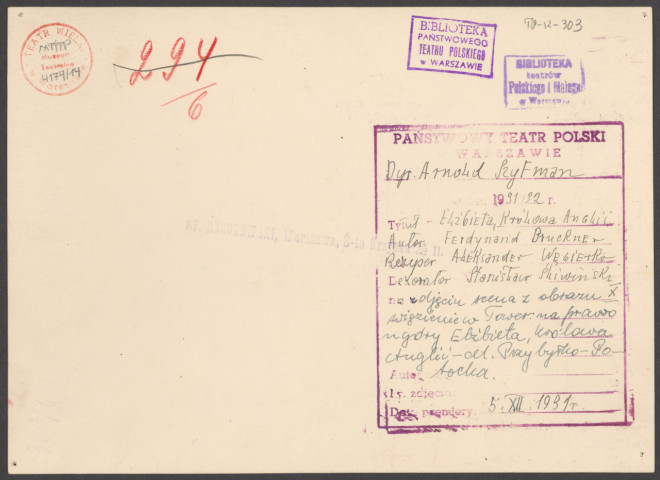 TEATR WIELKI
Muzeum
Teatralne
4179/14
294
6
BIBLIOTEKA
PAŃSTWOWEGO
TEATRU POLSKIEGO
w WARSZAWIE
IV-12-303
BIBLIOTEKA
teatrów
Polskiego i Małego
w Warszawie
PAŃSTWOWY TEATR POLSKI
w WARSZAWIE
Dyr. Arnold Szyfman
1931/32 r.
Tytuł - Elżbieta, Królowa Anglii.
Autor Ferdynand Bruckner
Reżyser Aleksander Węgierko
Dekorator Stanisław Śliwiński
na zdjęciu scena z obrazu X
więzienie w Tower. na prawo
u góry Elżbieta, Królowa
Anglii - M. Przybyłko-Po-
tocka.
zdjęcia
Data premiery 5. XII. 1931 r.
Warszawa,